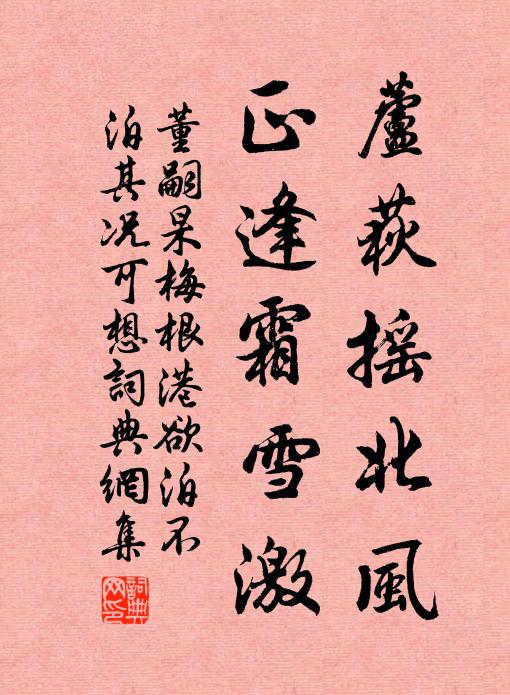 蘆荻搖北風
正逢霜雪激
董嗣杲梅根港欲泊不
泊其況可想詞典網集
詞典网印